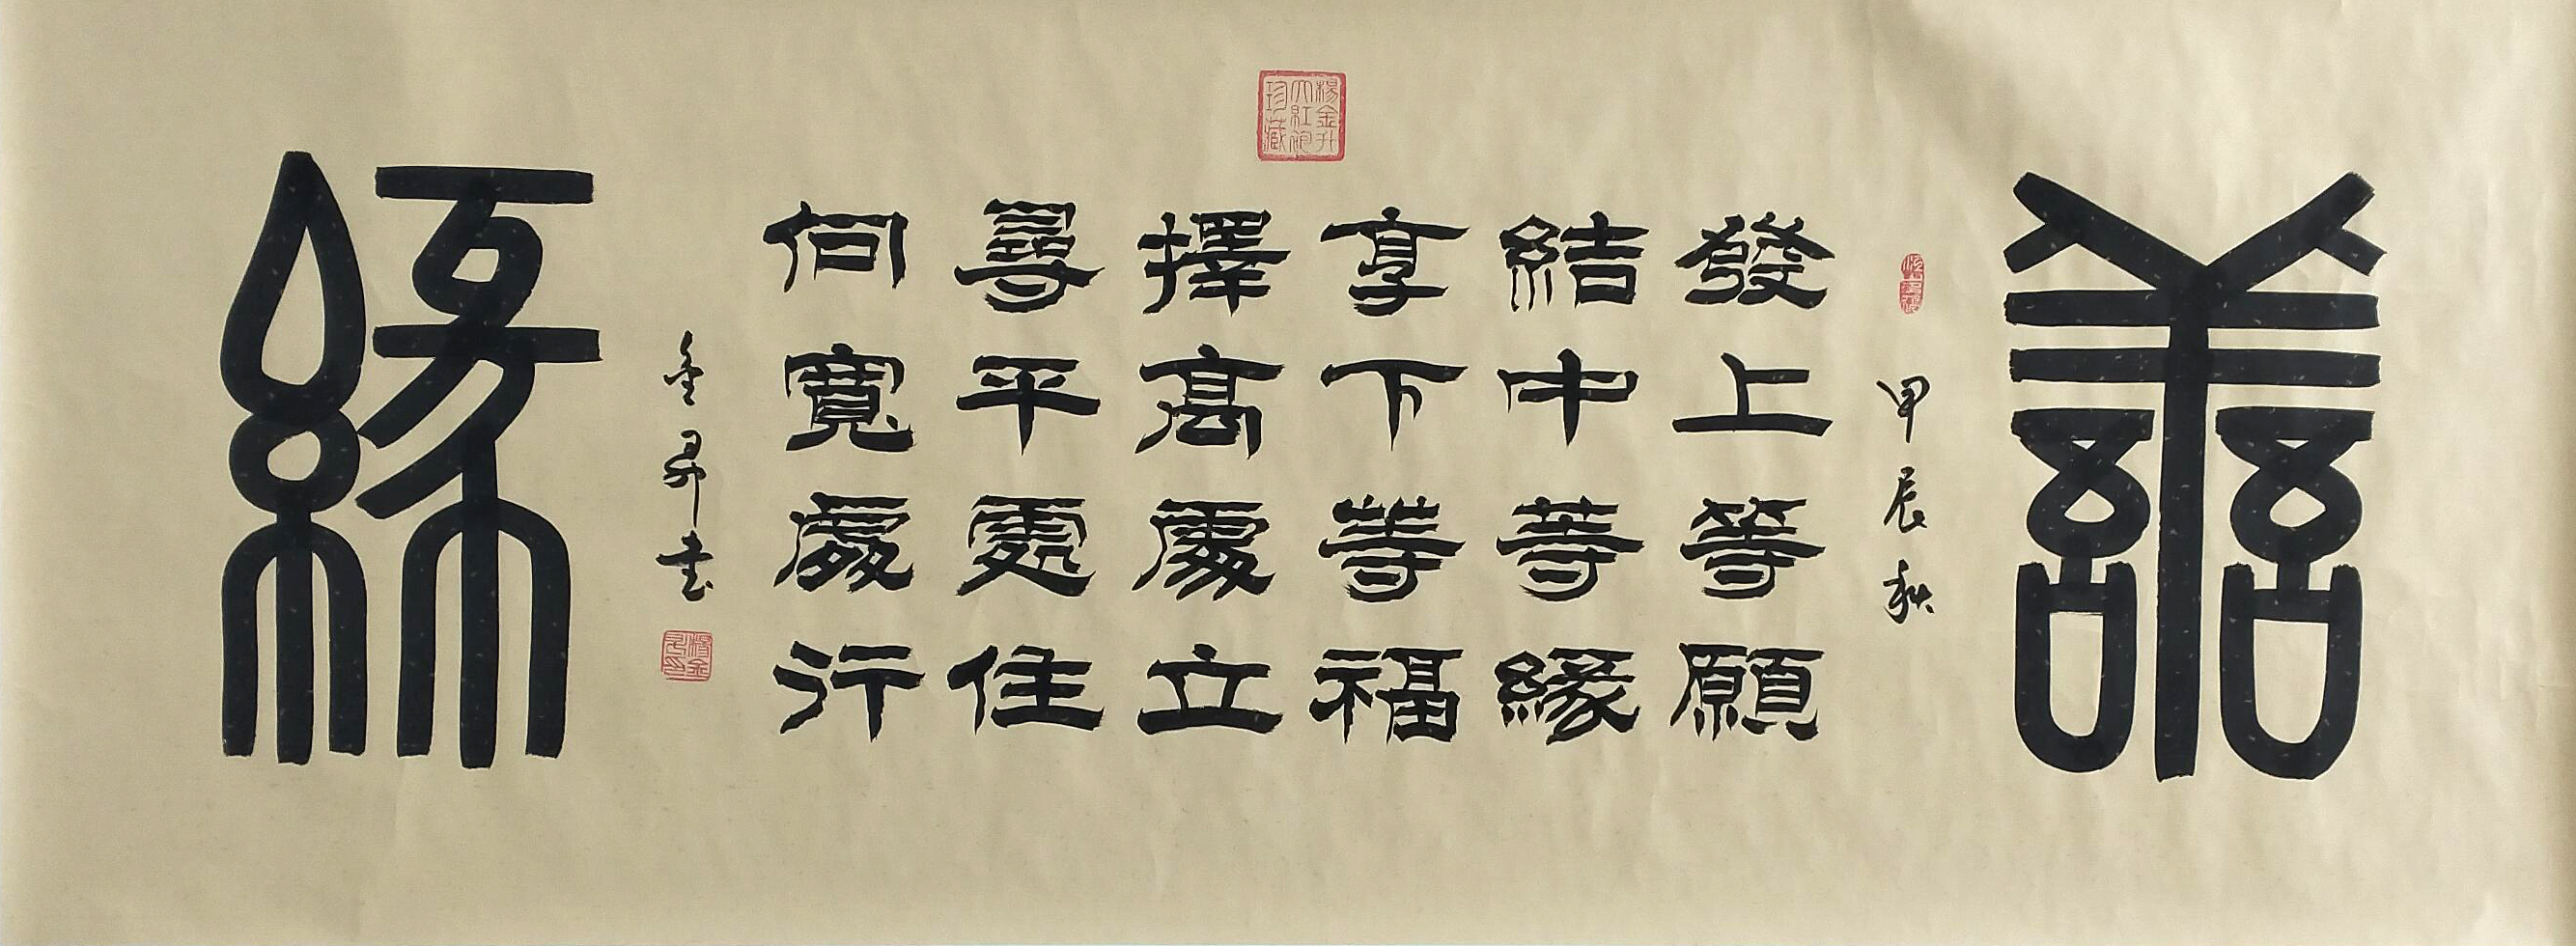 譱
甲辰秋
發上等願
結中等緣
享下等福
擇髙處立
尋平處住
向寬處行
金昇书
緣
楊金升
大紅袍
珍藏